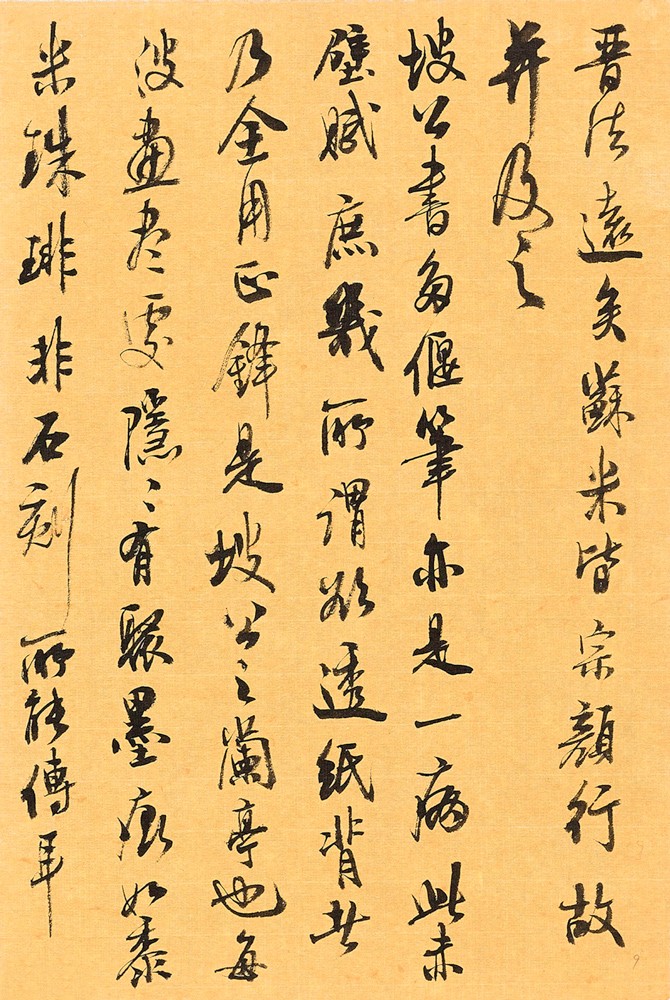 晋法远矣蘇米皆宗顔行故
并及之
坡公書多偃筆亦是一病此赤
壁賦庶幾所謂欲透紙背者
乃全用正鋒是坡公之蘭亭也每
波畫尽處隱〻有聚墨痕如黍
米珠琲非石刻所能傳耳
9